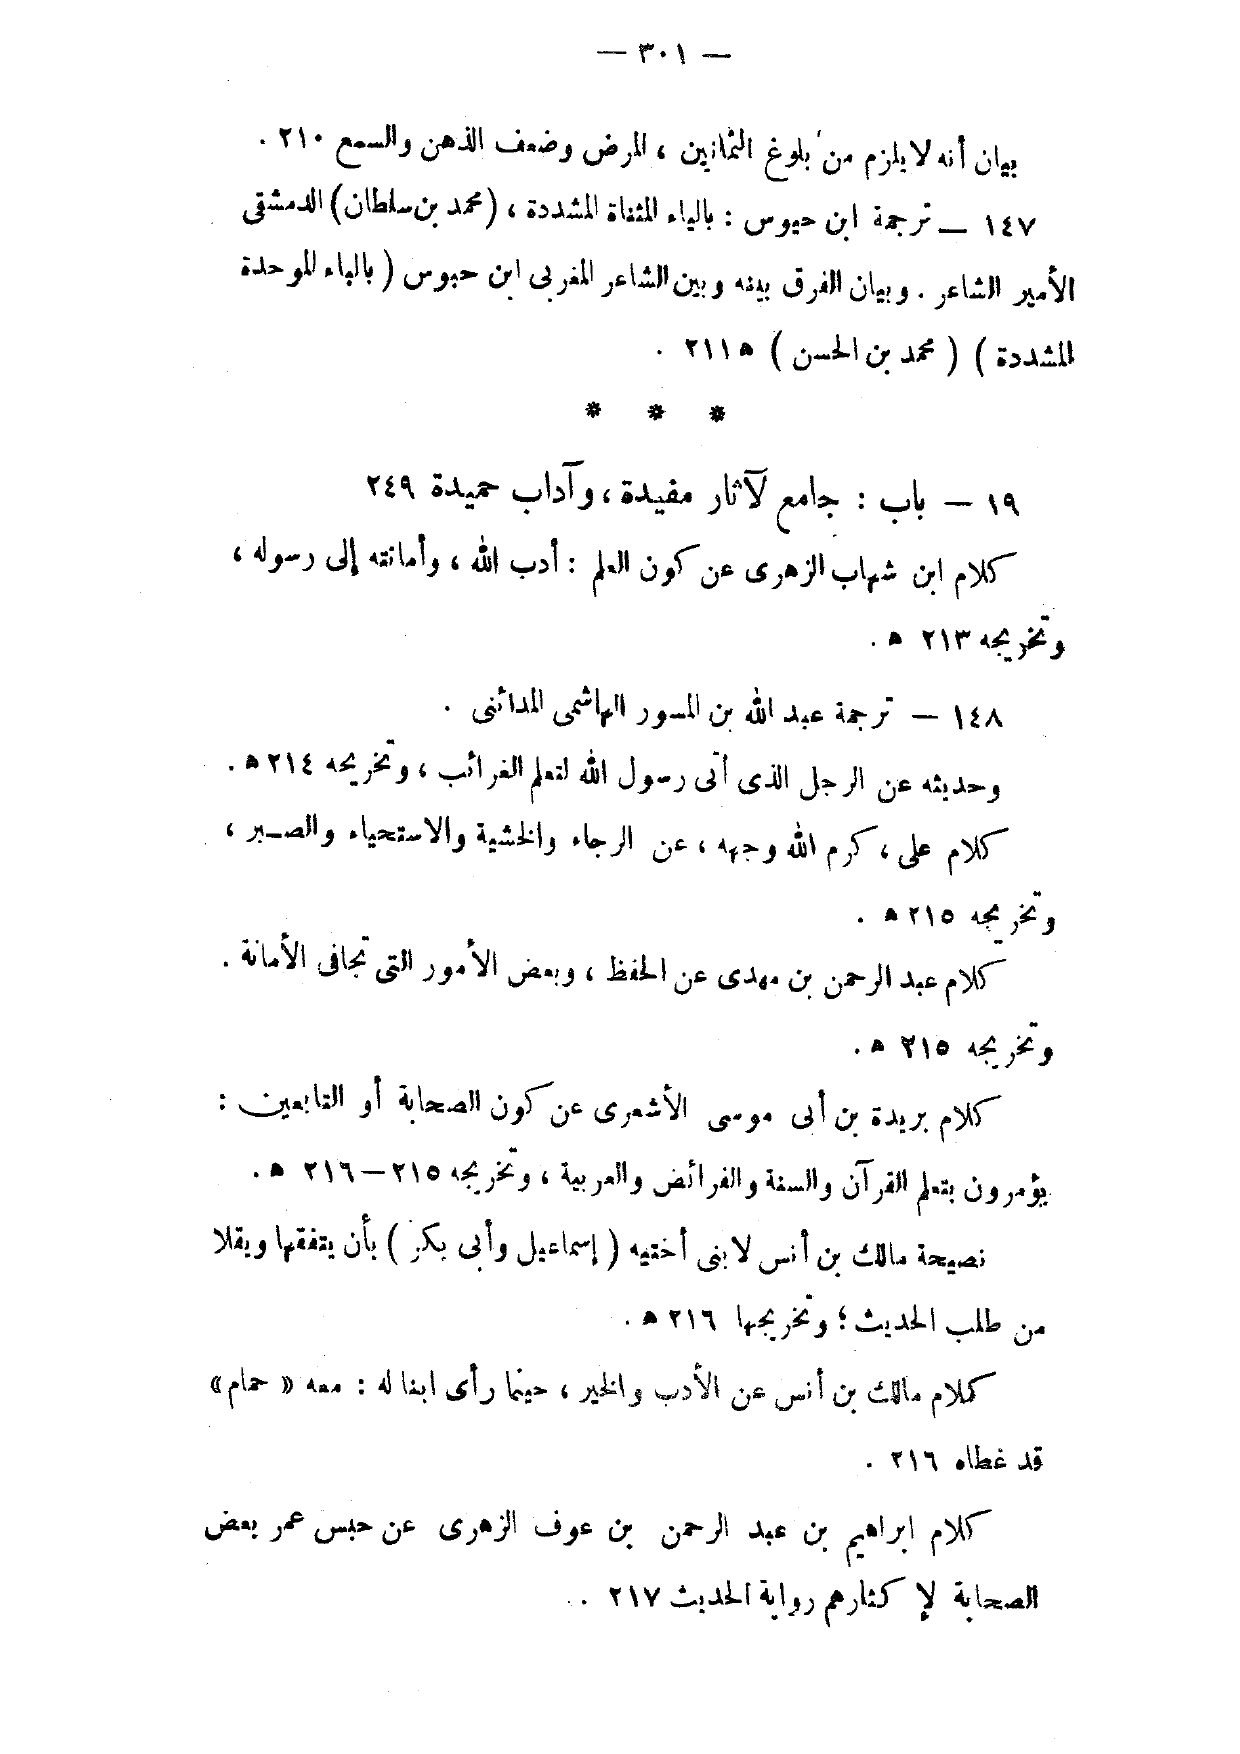 — ٣٠١ —
بيان أنه لا يلزم من بلوغ الثمانين ، المرض وضعف الذهن والسمع ٢١٠ .
١٤٧ — ترجمة ابن حيوس : بالياء المثناة المشددة ، (محمد بن سلطان) الدمشقى
الأمير الشاعر . وبيان الفرق بينه وبين الشاعر المغربى ابن حبوس ( بالباء الموحدة
المشددة ) ( محمد بن الحسن ) ٢١١ ه .
* * *
١٩ — باب : جامع لآثار مفيدة ، وآداب حميدة ٢٤٩
كلام ابن شهاب الزهرى عن كون العلم : أدب الله ، وأمانته إلى رسوله ،
وتخريجه ٢١٣ ه .
١٤٨ — ترجمة عبد الله بن المسور الهاشمى المدائنى .
وحديثه عن الرجل الذى أتى رسول الله لتعلم الغرائب ، وتخريجه ٢١٤ ه .
كلام على ، كرم الله وجهه ، عن الرجاء والخشية والاستحياء والصبر ،
وتخريجه ٢١٥ ه .
كلام عبد الرحمن بن مهدى عن الحفظ ، وبعض الأمور التى تجافى الأمانة .
وتخريجه ٢١٥ ه .
كلام بريدة بن أبى موسى الأشعرى عن كون الصحابة أو التابعين :
يؤمرون بتعلم القرآن والسنة والفرائض والعربية ، وتخريجه ٢١٥ — ٢١٦ ه .
نصيحة مالك بن أنس لابنى أختيه ( إسماعيل وأبى بكر ) بأن يتفقها ويقلا
من طلب الحديث ؛ وتخريجها ٢١٦ ه .
كلام مالك بن أنس عن الأدب والخير ، حينما رأى ابنا له : معه « حمام »
قد غطاه ٢١٦ .
كلام ابراهيم بن عبد الرحمن بن عوف الزهرى عن حبس عمر بعض
الصحابة لإكثارهم رواية الحديث ٢١٧ .